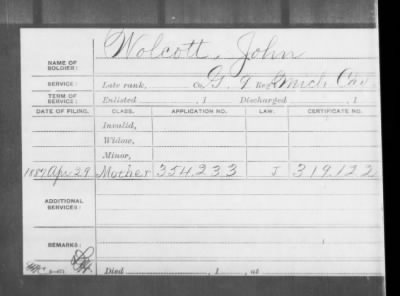 Wolcott, John
NAME OF
SOLDIER:
SERVICE: Late rank, Co. G, 9 Reg't Mich Cav
TERM OF
SERVICE: Enlisted , 1 Discharged , 1
DATE OF FILING. CLASS. APPLICATION NO. LAW. CERTIFICATE NO.
Invalid,
Widow,
Minor,
1887 Apr 29 Mother 354.233 J 319.122
ADDITIONAL
SERVICES:
REMARKS:
Died , 1 , at